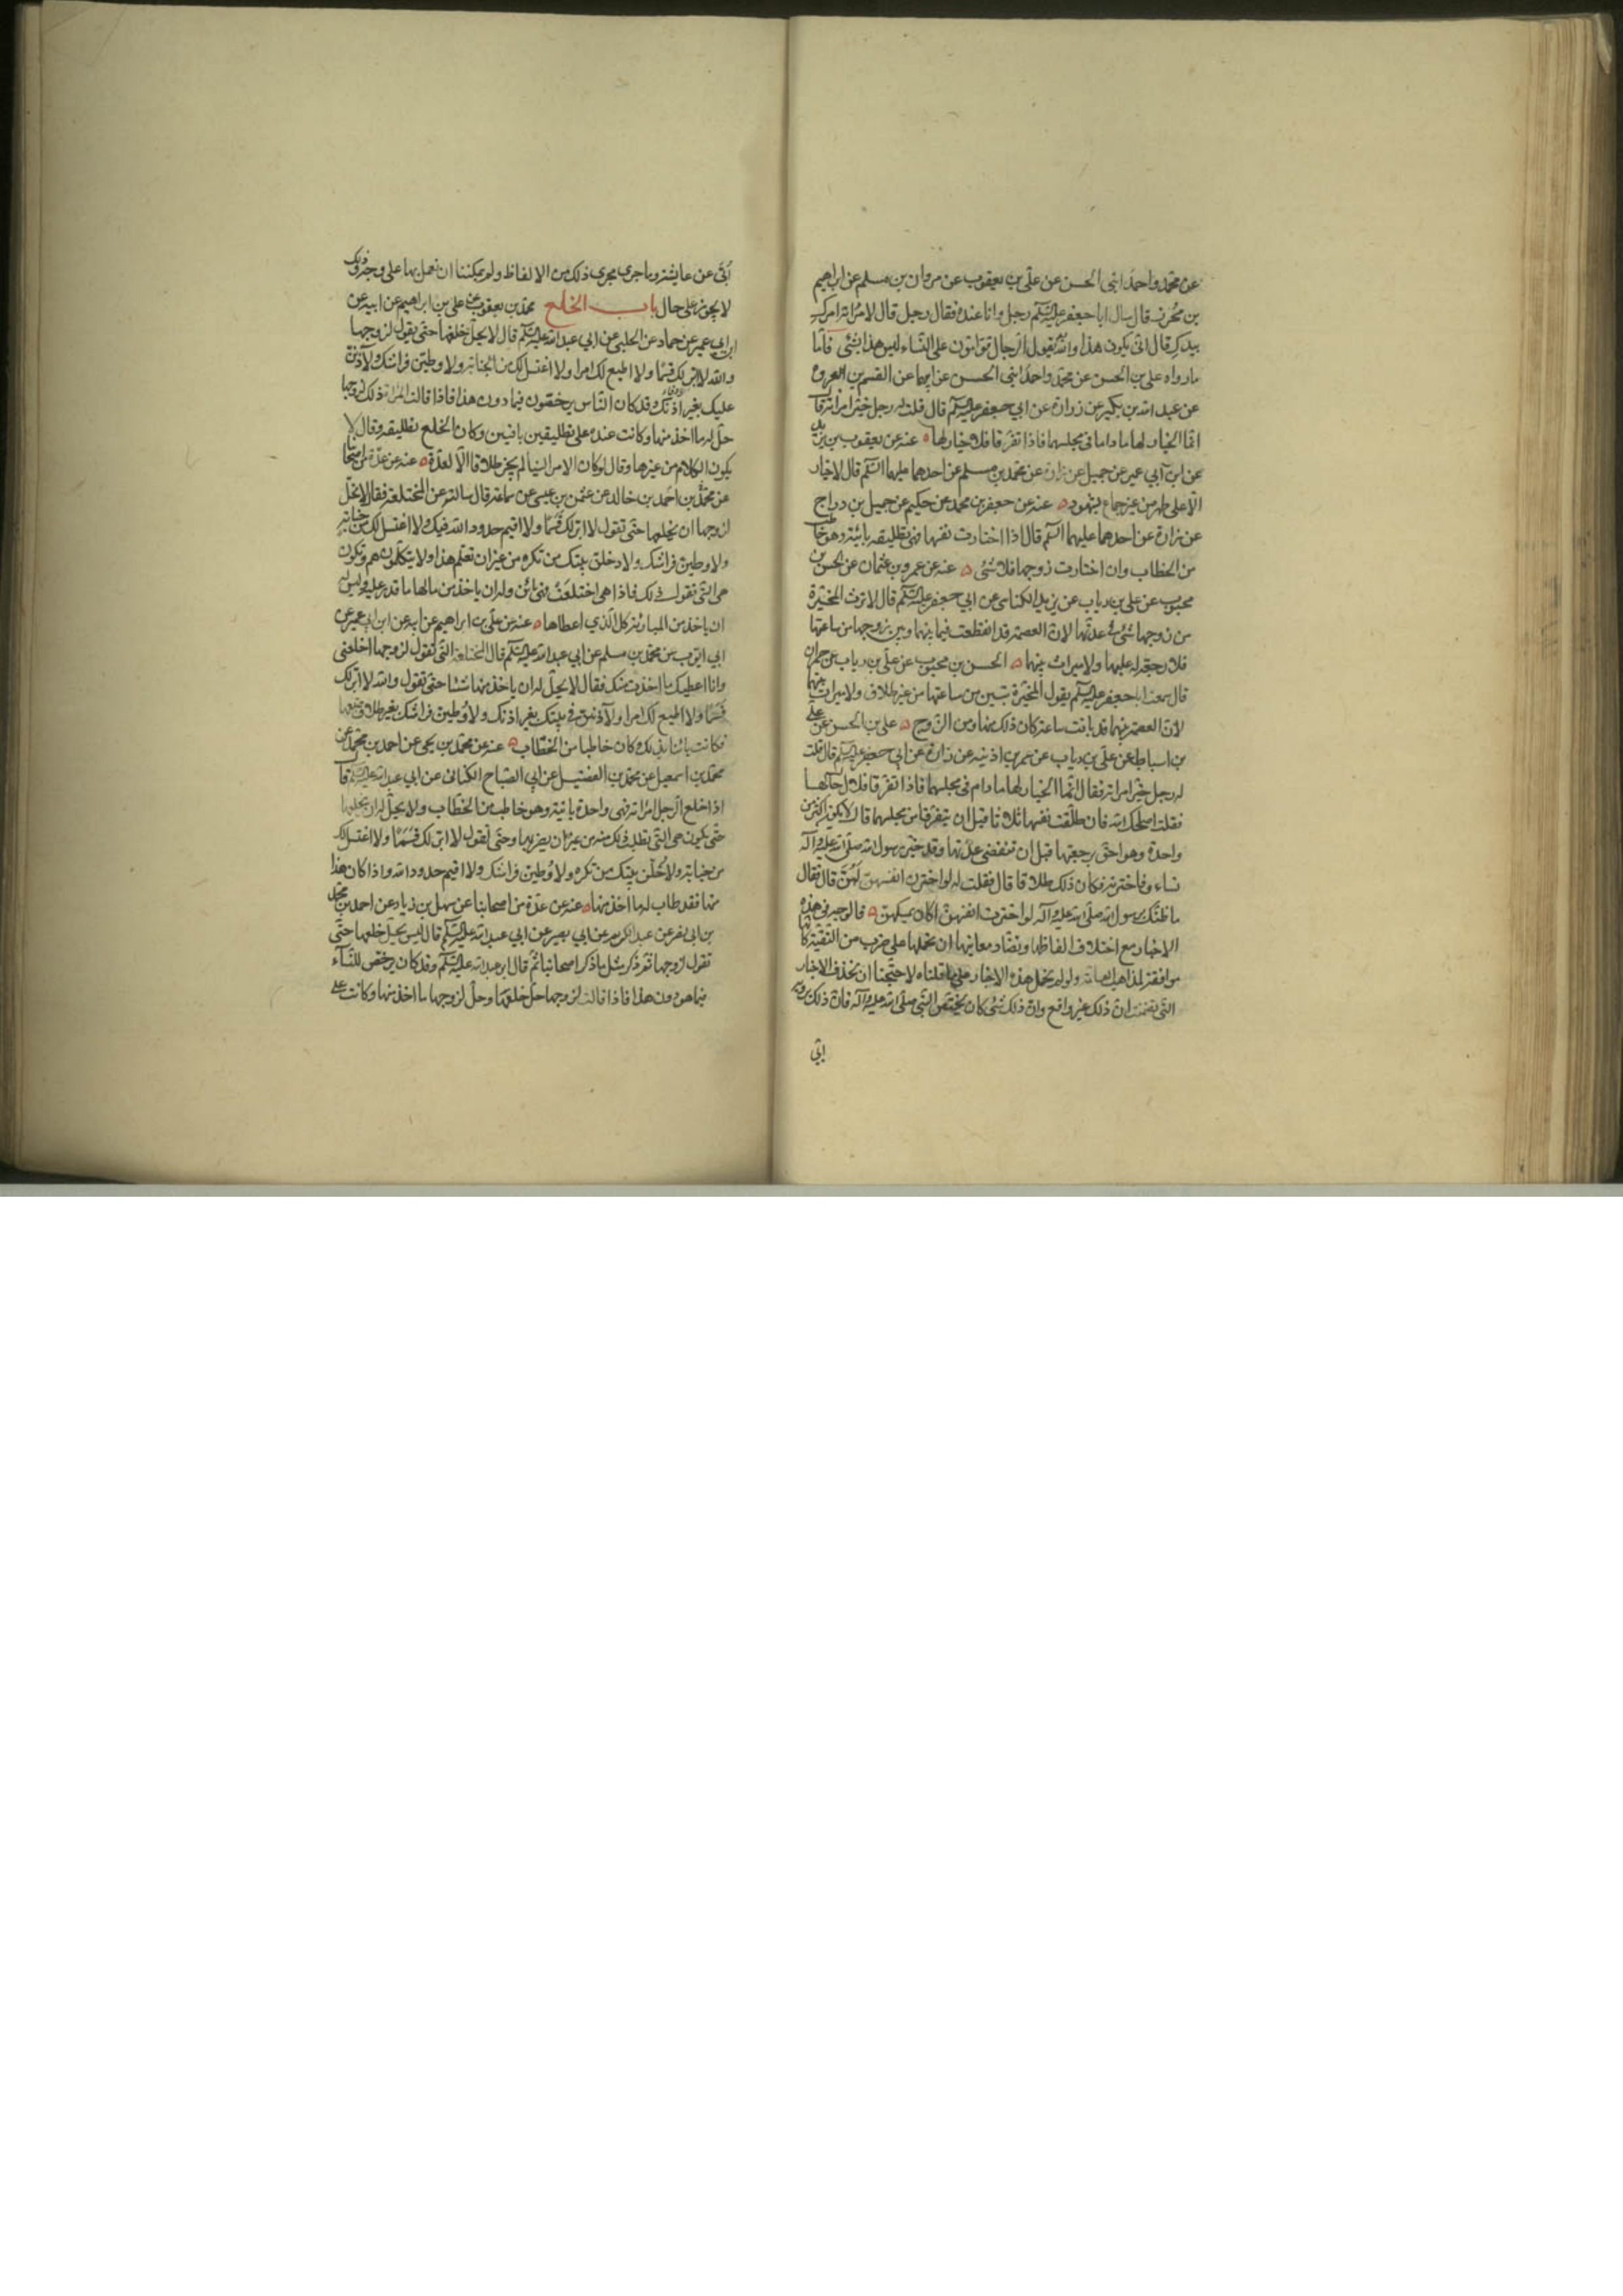 عن محمد واحمد ابنى الحسن عن على بن يعقوب عن مروان بن مسلم عن ابراهيم
بن محرز قال سال ابا جعفر عليه السلم رجل وانا عنده فقال رجل قال لامراته امرك
بيدك قال انى يكون هذا والله يقول الرجال قوامون على النساء ليس هذا بشئ فاما
ما رواه على بن الحسن عن محمد واحمد ابنى الحسن عن ابيهما عن القسم بن العروة
عن عبد الله بن بكير عن زرارة عن ابي جعفر عليه السلم قال قلت له رجل خير امراته قال
انما الخيار لهما ما داما فى مجلسهما فاذا تفرقا فلا خيار لها عنه عن يعقوب بن يزيد
عن ابن ابي عمير عن جميل عن زرارة عن محمد بن مسلم عن احدهما عليهما السلم قال لا خيار
الا على طهر من غير جماع بشهود عنه عن جعفر بن محمد عن حكيم عن جميل بن دراج
عن زرارة عن احدهما عليهما السلم قال اذا اختارت نفسها فهى تطليقه بائنة وهو خاطب
من الخطاب وان اختارت زوجها فلا شئ عنه عن عمرو بن عثمان عن الحسن بن
محبوب عن على بن رياب عن يزيد الكناسى عن ابي جعفر عليه السلم قال لا ترث المخيرة
من زوجها شئ فى عدتها لان العصمة قد انقطعت فيما بينها وبين زوجها من ساعتها
فلا رجعة له عليها ولا ميراث بينهما الحسن بن محبوب عن على بن رياب عن حمران
قال سمعت ابا جعفر عليه السلم يقول المخيرة تبين من ساعتها من غير طلاق ولا ميراث بينهما
لان العصمة بينهما قد بانت ساعة كان ذلك منها ومن الزوج على بن الحسن عن على
بن اسباط عن على بن رياب عن عمر بن اذينه عن زرارة عن ابي جعفر عليه السلم قال قلت
له رجل خير امراته فقال انما الخيار لهما ما دام فى مجلسهما فاذا تفرقا فلا
فقلت اصلحك الله فان طلقت نفسها ثلاثا قبل ان يتفرقا من مجلسهما قال لا يكون اكثر من
واحدة وهو احق برجعتها قبل ان تنقضى عدتها وقد خير رسول الله صلى الله عليه وآله
نساءه فاخترنه فكان ذلك طلاقا قال فقلت له لو اخترن انفسهن لبن قال فقال
ما ظنك برسول الله صلى الله عليه وآله لو اخترن انفسهن اكان يمسكهن فالوجه فى هذه
الاخبار مع اختلاف الفاظها وتضاد معانيها ان نحملها على ضرب من التقية لانها
موافقة لمذاهب العامة ولو لم نحمل هذه الاخبار على ما قلناه لاحتجنا ان نحذف الاخبار
التى تضمنت ان ذلك غير واقع وان ذلك شئ كان يختص النبى صلى الله عليه وآله فان ذلك
ابى
ابى عن عايشة وما جرى مجرى ذلك من الالفاظ ولم يمكننا ان نعمل بها على وجه وذلك
لا يجوز على حال باب الخلع محمد بن يعقوب عن على بن ابراهيم عن ابيه عن
ابن ابي عمير عن حماد عن الحلبى عن ابي عبد الله عليه السلم قال لا يحل خلعها حتى يقول لزوجها
والله لا ابر لك قسما ولا اطيع لك امرا ولا اغتسل لك من الجنابة ولا وطين فراشك ولآذنن
عليك بغير اذنك وقد كان الناس يرخصون فيما دون هذا فاذا قالت المراة ذلك لزوجها
حل له ما اخذ منها وكانت عنده على تطليقين باقيتين وكان الخلع تطليقه وقال لا
يكون الكلام من عندها وقال لو كان الامر الينا لم يجز طلاقا الا لعدة عنه عن عدة من اصحابنا
عن محمد بن احمد بن خالد عن عثمن بن عيسى عن سماعة قال سالته عن المختلعة فقال لا يحل
لزوجها ان يخلعها حتى تقول لا ابر لك قسما ولا اقيم حدود الله فيك ولا اغتسل لك من جنابة
ولا وطين فراشك ولا دخلن بيتك من تكره من غير ان تعلم هذا ولا يتكلمون هم وتكون
هى التى تقول ذلك فاذا هى اختلعت فهى بائن وله ان ياخذ من مالها ما قدر عليه وليس له
ان ياخذ من المبارئة كل الذي اعطاها عنه عن على بن ابراهيم عن ابيه عن ابن ابي عمير عن
ابي ايوب عن محمد بن مسلم عن ابي عبد الله عليه السلم قال المختلعة التى تقول لزوجها اخلعنى
وانا اعطيك ما اخذت منك فقال لا يحل له ان ياخذ منها شيئا حتى تقول والله لا ابر لك
قسما ولا اطيع لك امرا ولآذنن فى بيتك بغير اذنك ولاوطين فراشك بغير
فكانت بائنا بذلك وكان خاطبا من الخطاب عنه عن محمد بن يحيى عن احمد بن محمد عن
محمد بن اسمعيل عن محمد بن الفضيل عن ابي الصباح الكنانى عن ابي عبد الله عليه السلم قال
اذا خلع الرجل امراته فهى واحدة باينة وهو خاطب من الخطاب ولا يحل له ان يخلعها
حتى يكون هى التى تطلب ذلك منه من غير ان يضر بها وحتى تقول لا ابر لك قسما ولا اغتسل لك
من جنابة ولادخلن بيتك من تكره ولاوطين فراشك ولا اقيم حدود الله واذا كان هذا
منها فقد طاب له ما اخذ منها عنه عن عدة من اصحابنا عن سهل بن زياد عن احمد بن محمد
بن ابى نصر عن عبد الكريم عن ابي بصير عن ابي عبد الله عليه السلم قال ليس يحل خلعها حتى
تقول لزوجها ثم ذكر مثل ما ذكر اصحابنا ثم قال ابو عبد الله عليه السلم وقد كان يرخص للنساء
فيما هو دون هذا فاذا قالت لزوجها حل خلعها وحل لزوجها ما اخذ منها وكانت على